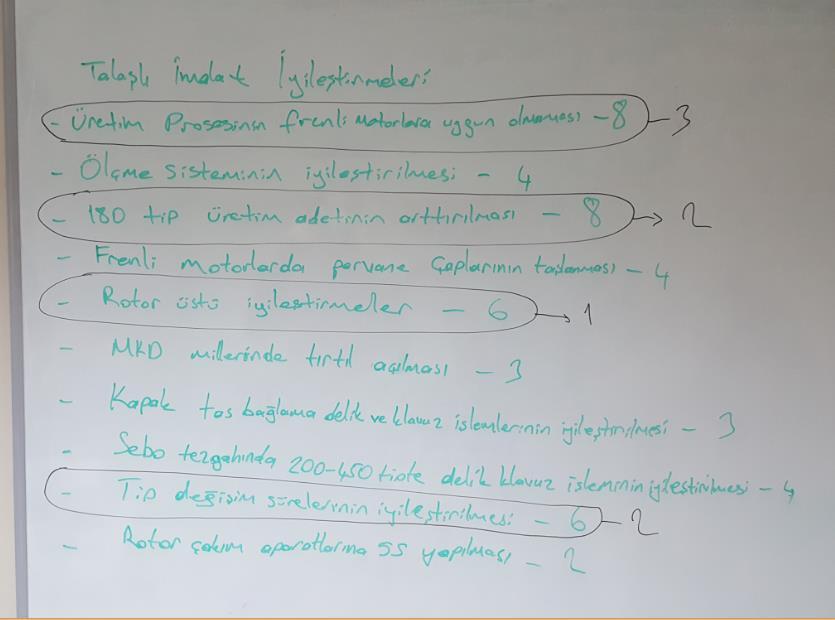 Talaşlı İmalat İyileştirmeleri
- Üretim Prosesinin frenli motorlara uygun olmaması - 8 - 3
- Ölçme sisteminin iyileştirilmesi - 4
- 180 tip üretim adetinin arttırılması - 8 → 2
- Frenli motorlarda pervane Çaplarının taşlanması - 4
- Rotor üstü iyileştirmeler - 6 → 1
- MKD millerinde tırtıl açılması - 3
- Kapak tas bağlama delik ve klavuz işlemlerinin iyileştirilmesi - 3
- Sebo tezgahında 200-450 tipte delik klavuz işleminin iyileştirilmesi - 4
- Tip değişim sürelerinin iyileştirilmesi - 6 - 2
- Rotor çakım aparatlarına 5S yapılması - 2